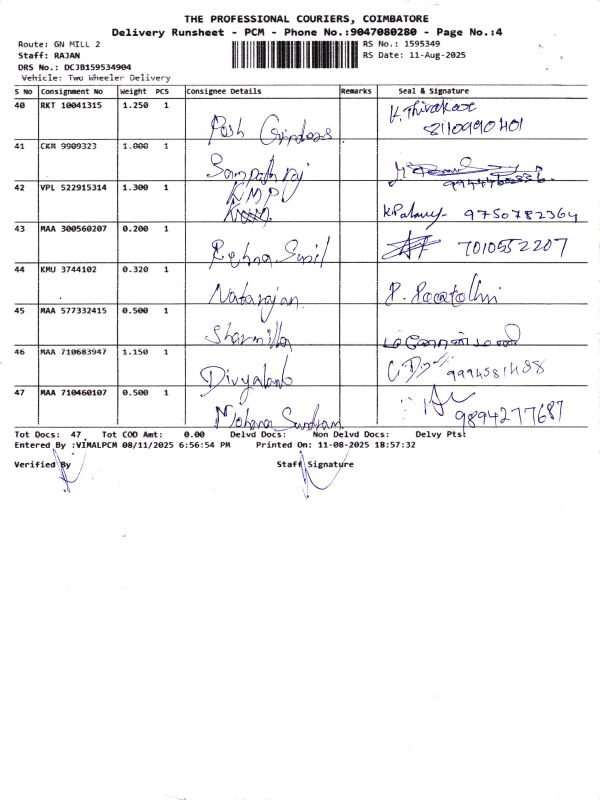 THE PROFESSIONAL COURIERS, COIMBATORE
Delivery Runsheet - PCM - Phone No.:9047080280 - Page No.:4
Route: GN MILL 2
RS No.: 1595349
Staff: RAJAN
RS Date: 11-Aug-2025
DRS No.: DCJB159534904
Vehicle: Two Wheeler Delivery
S No Consignment No Weight PCS Consignee Details Remarks Seal & Signature
40 RKT 10041315 1.250 1 Posh Grindass K. Thivakar
8110990401
41 CKM 9909323 1.000 1 Sampath raj
42 VPL 522915314 1.300 1 KMP K. Palany 9750782364
43 MAA 300560207 0.200 1 Rehna Sunil 7010552207
44 KMU 3744102 0.320 1 Natarajan P.
45 MAA 577332415 0.500 1 Sharmilla
46 MAA 710683947 1.150 1 Divyalank 9994581488
47 MAA 710460107 0.500 1 Mohana Sundram 9894277687
Tot Docs: 47 Tot COD Amt: 0.00 Delvd Docs: Non Delvd Docs: Delvy Pts:
Entered By :VIMALPCM 08/11/2025 6:56:54 PM Printed On: 11-08-2025 18:57:32
Verified By Staff Signature